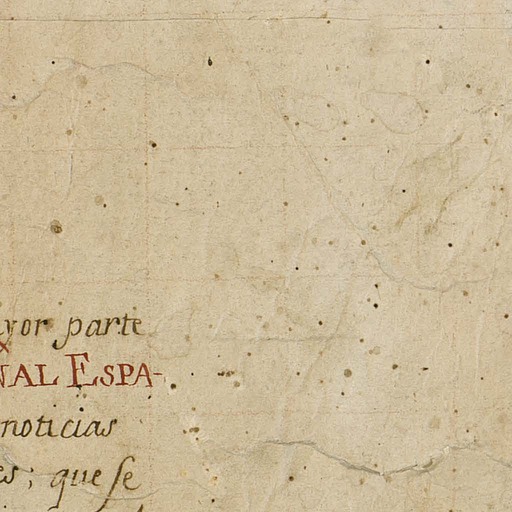 yor parte
NAL ESPA-
noticias
es; que se